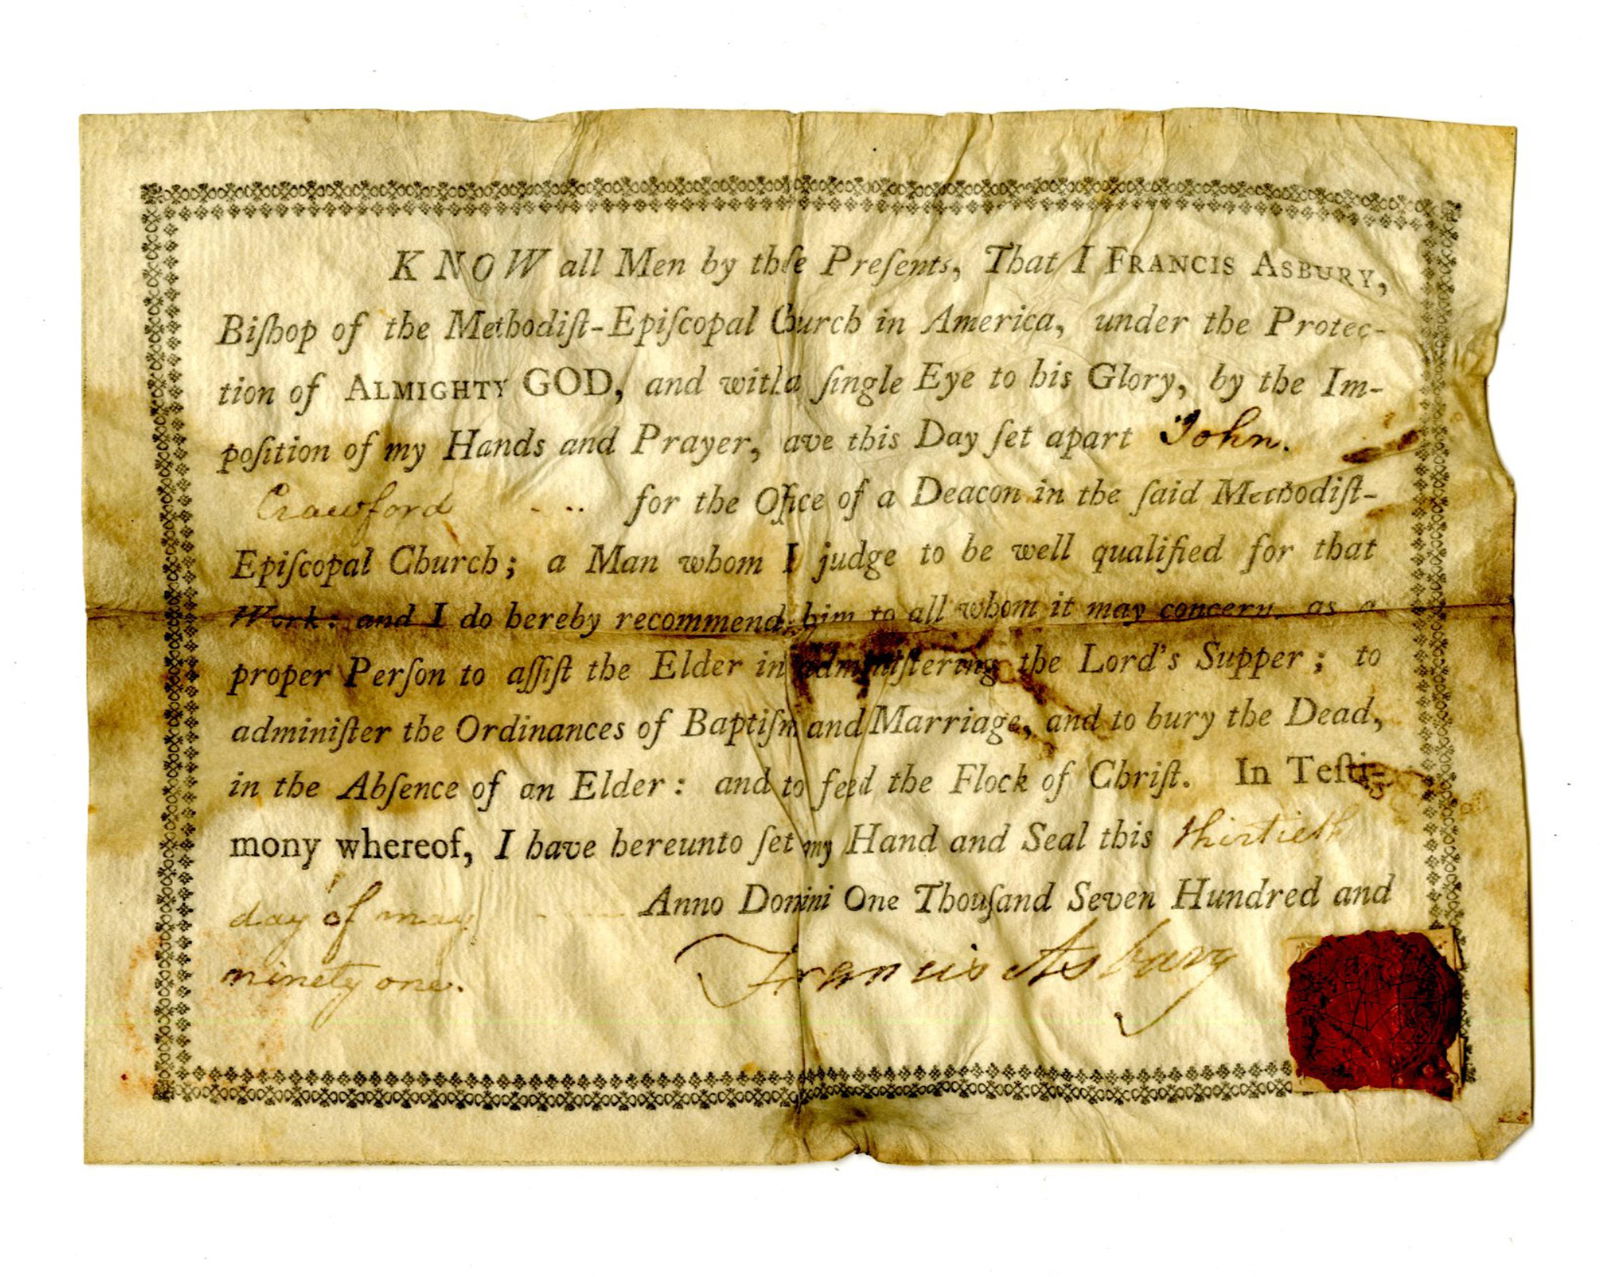 KNOW all Men by thſe Preſents, That I FRANCIS ASBURY,
Biſhop of the Methodiſt-Epiſcopal Church in America, under the Protec-
tion of ALMIGHTY GOD, and with a ſingle Eye to his Glory, by the Im-
poſition of my Hands and Prayer, ave this Day ſet apart John.
Crawford - .. for the Office of a Deacon in the ſaid Methodiſt-
Epiſcopal Church; a Man whom I judge to be well qualified for that
Work: and I do hereby recommend him to all whom it may concern, as a
proper Perſon to aſſiſt the Elder in adminiſtering the Lord's Supper; to
adminiſter the Ordinances of Baptiſm and Marriage, and to bury the Dead,
in the Abſence of an Elder: and to feed the Flock of Chriſt. In Teſti-
mony whereof, I have hereunto ſet my Hand and Seal this thirtieth
day of may Anno Domini One Thouſand Seven Hundred and
ninety one. Francis Asbury